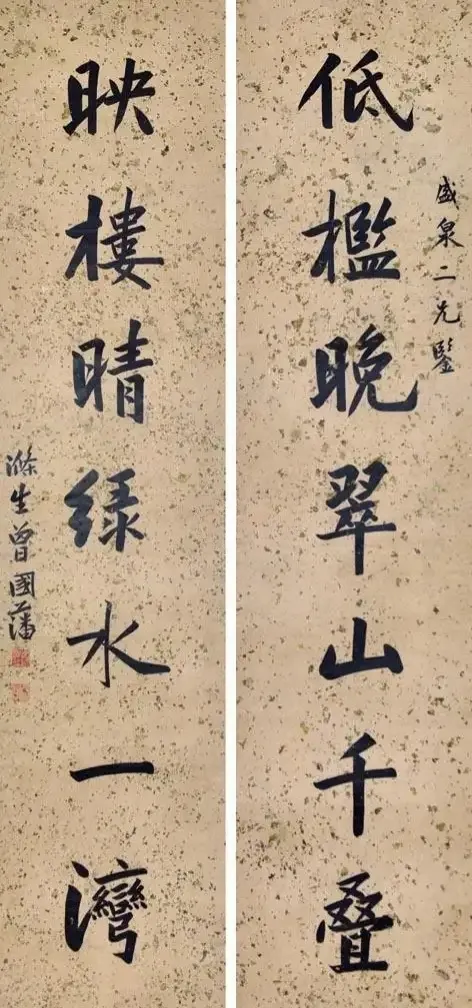 盛泉二兄鑒
低檻晚翠山千叠
映樓晴綠水一灣
滌生曾國藩